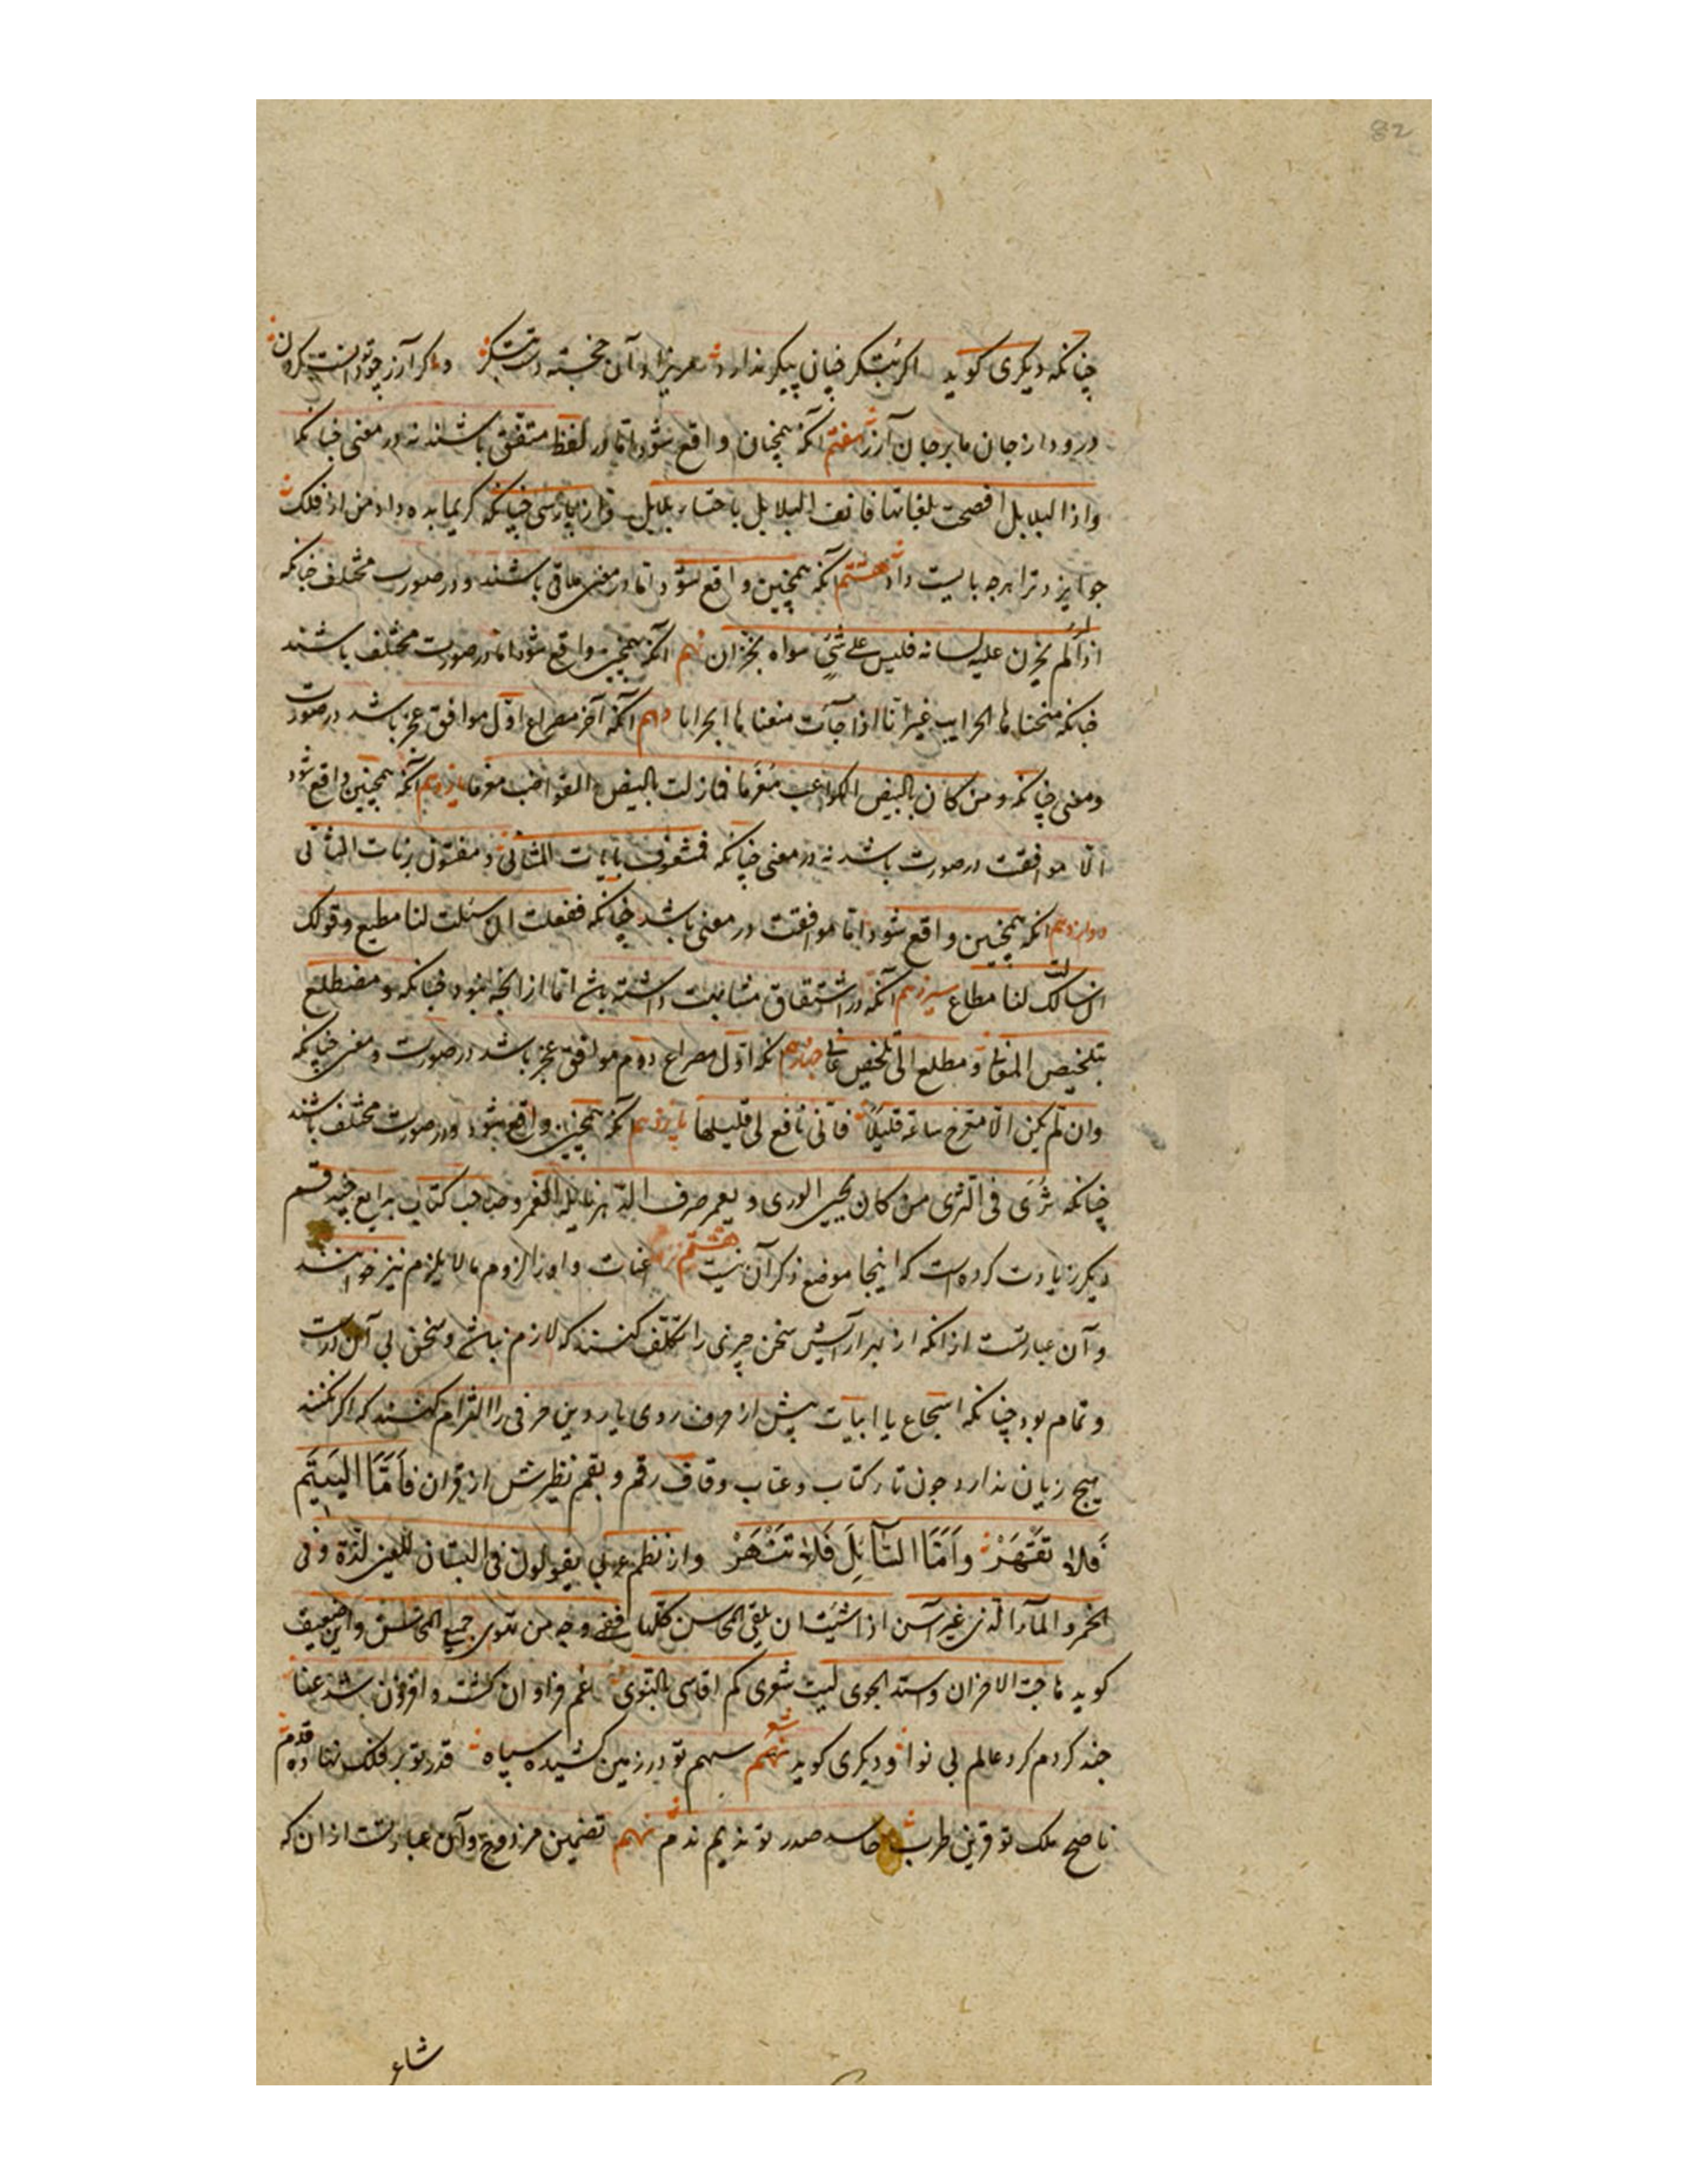 82
چنانکه دیکری کوید اکر بتکر چنان پیکر نذارد مریزاد آن خجسته دست بتکر و اکر آزر چو تو دانست کردن
درود از جان ما بر جان آزر هفتم آنکه همچنان واقع شود اما در لفظ متفق باشند نه در معنی چنانکه
واذا البلابل افصحت بلغاتها فانف البلابل باحتساء بلابل و از پارسی چنانکه کریما بده داد من از فلک
جو ایزد ترا هرچه بایست داد هشتم آنکه همچنین واقع شود اما در معنی ملاقی باشند و در صورت مختلف چنانکه
اذا لم یخزن علیه لسانه فلیس علی شیء سواه بخزان نهم آنکه همچنین واقع شود اما در صورت مختلف باشند
چنانکه منحناها الحرایب غیر انا اذا جآءت منعناها الحرابا دهم آنکه آخر مصراع اول موافق عجز باشد در صورت
و معنی چنانکه و من کان بالبیض الکواعب مغرما فمازلت بالبیض القواضب مغرما یازدهم آنکه همچنین واقع شود
الا موافقت در صورت باشد نه در معنی چنانکه فمشغوف بآیات المثانی و مفتون برنات المثانی
دوازدهم آنکه همچنین واقع شود اما موافقت در معنی باشد چنانکه ففعلک ان سئلت لنا مطیع و قولک
ان سالت لنا مطاع سیزدهم آنکه در اشتقاق مشابهت داشته باشد اما از آنجا نبود چنانکه و مضطلع
بتلخیص المعانی و مطلع الی تخلیص عانی چهاردهم آنکه اول مصراع دوم موافق عجز باشد در صورت و معنی چنانکه
وان لم یکن الا معرج ساعة قلیلا فانی نافع لی قلیلها پانزدهم آنکه همچنین واقع شود و در صورت مختلف باشند
چنانکه ثوی فی الثری من کان یحیی الوری و یغمر صرف الدهر نایله الغمر و صاحب کتاب بدایع چند قسم
دیکر زیادت کرده است که اینجا موضع ذکر آن نیست هشتم اعنات و او را لزوم مالایلزم نیز خوانند
و آن عبارتست از آنکه از بهر آرایش سخن چیزی را تکلف کنند که لازم نباشد و سخن بی آن درست
و تمام بود چنانکه اسجاع یا ابیات پیش از حرف روی یا ردیف حرفی را التزام کنند که اکر نکنند
هیچ زیان ندارد جون تاء کتاب و عتاب و قاف رقم و بقم نظیرش از قران فَاَمَّا الیَتیَمَ
فَلا تَقْهَرْ وَاَمَّا السَّآئِلَ فَلا تَنْهَرْ و از نظم عربی یقولون فی البستان للعین لذة و فی
الخمر و المآء الذی غیر آسن اذا شئت ان تلقی المحاسن کلها ففی وجه من تهوی جمیع المحاسن و این ضعیف
کوید هاجت الاحزان واشتد الجوی لیت شعری کم اقاسی بالنوی غم فراوان کشت و افزون شد عنا
چند کردم کرد عالم بی نوا و دیکری کوید شعر سهم تو در زمین کشیده سپاه قدر تو بر فلک نهاده قدم
ناصح ملک تو قرین طرب حاسد صدر تو ندیم ندم نهم تضمین مزدوج و آن عبارتست از ان که
شاعر